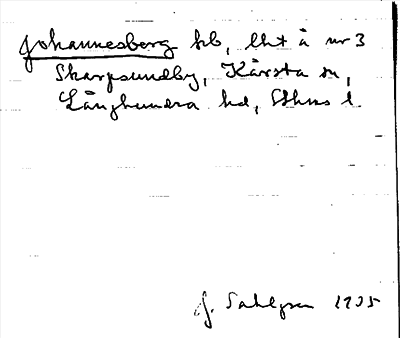 Johannesberg hb, lht å nr 3
Skarpsundby, Kårsta sn,
Långhundra hd, Sthms l.
J. Sahlgren 1935